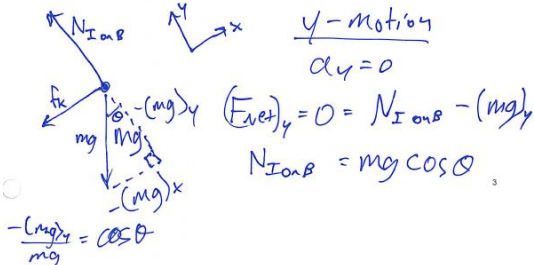 N_I on B
y
x
y-motion
a_y = 0
f_k
θ
-(mg)_y
mg
mg
(F_net)_y = 0 = N_I on B - (mg)_y
N_I on B = mg cosθ
-(mg)_x
3
-(mg)_y / mg = cosθ